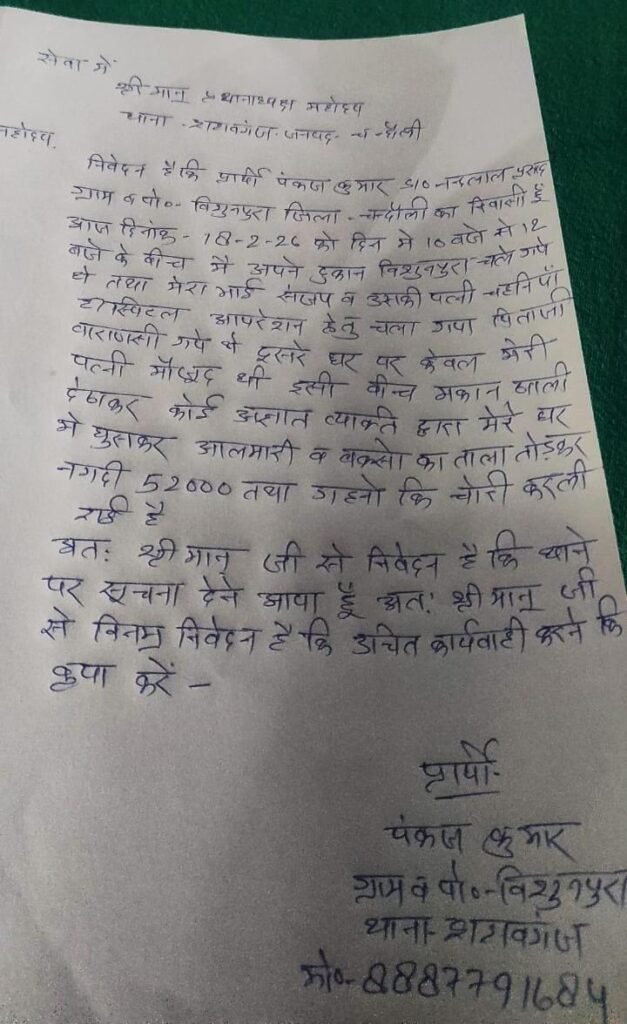 सेवा में
श्री मान् थानाध्यक्ष महोदय
थाना - शहाबगंज जनपद - चन्दौली
महोदय,
निवेदन है कि प्रार्थी पंकज कुमार S/o नन्दलाल प्रसाद
ग्राम व पो०- विशुनपुरा जिला - चन्दौली का निवासी हूँ
आज दिनांक - 18-2-26 को दिन मे 10 बजे से 12
बजे के बीच मै अपने दुकान विशुनपुरा चले गये
थे तथा मेरा भाई संजय व उसकी पत्नी चहनियाँ
हास्पिटल आपरेशन हेतु चला गया पिताजी
वाराणसी गये थे दूसरे घर पर केवल मेरी
पत्नी मौजूद थी इसी बीच मकान खाली
देखकर कोई अज्ञात व्यक्ति द्वारा मेरे घर
मे घुसकर आलमारी व बक्सो का ताला तोड़कर
नगदी 52000 तथा गहनो कि चोरी करली
गई है
अतः श्री मान् जी से निवेदन है कि थाने
पर सूचना देने आया हूँ अतः श्री मान् जी
से विनम्र निवेदन है कि उचित कार्यवाही करने कि
कृपा करें -
प्रार्थी-
पंकज कुमार
ग्राम व पो०-विशुनपुरा
थाना-शहाबगंज
मो०-8887791684